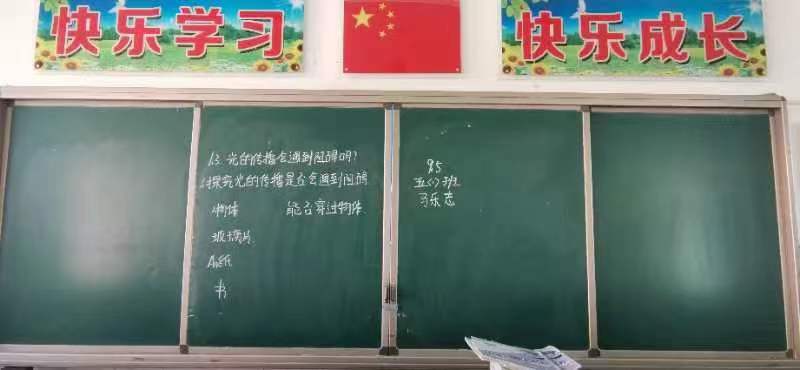 快乐学习
快乐成长
1.3. 光的传播会遇到阻碍吗?
1.探究光的传播是否会遇到阻碍
物体 能否穿过物体
玻璃片
A4纸
书
85
五(1)班
马乐志